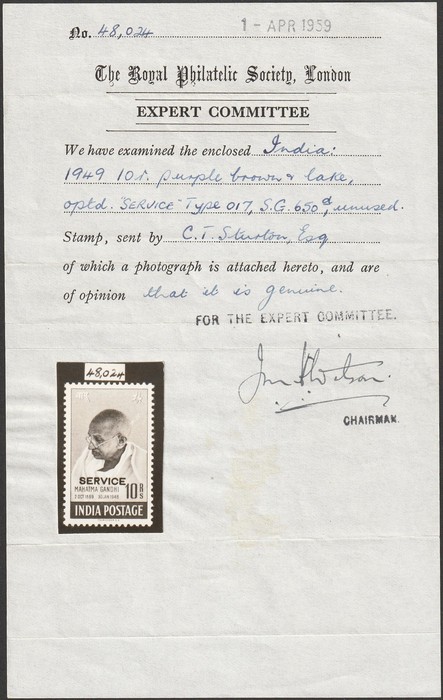 1 - APR 1959
No. 48,024
The Royal Philatelic Society, London
EXPERT COMMITTEE
We have examined the enclosed India:
1949 10r. purple brown & lake,
optd. "SERVICE" Type O17, S.G. 650d, unused.
Stamp, sent by C.T. Sturton, Esq
of which a photograph is attached hereto, and are
of opinion that it is genuine.
FOR THE EXPERT COMMITTEE.
CHAIRMAN.
48,024
SERVICE
MAHATMA GANDHI
2 OCT 1869 30 JAN 1948
10 RS
INDIA POSTAGE